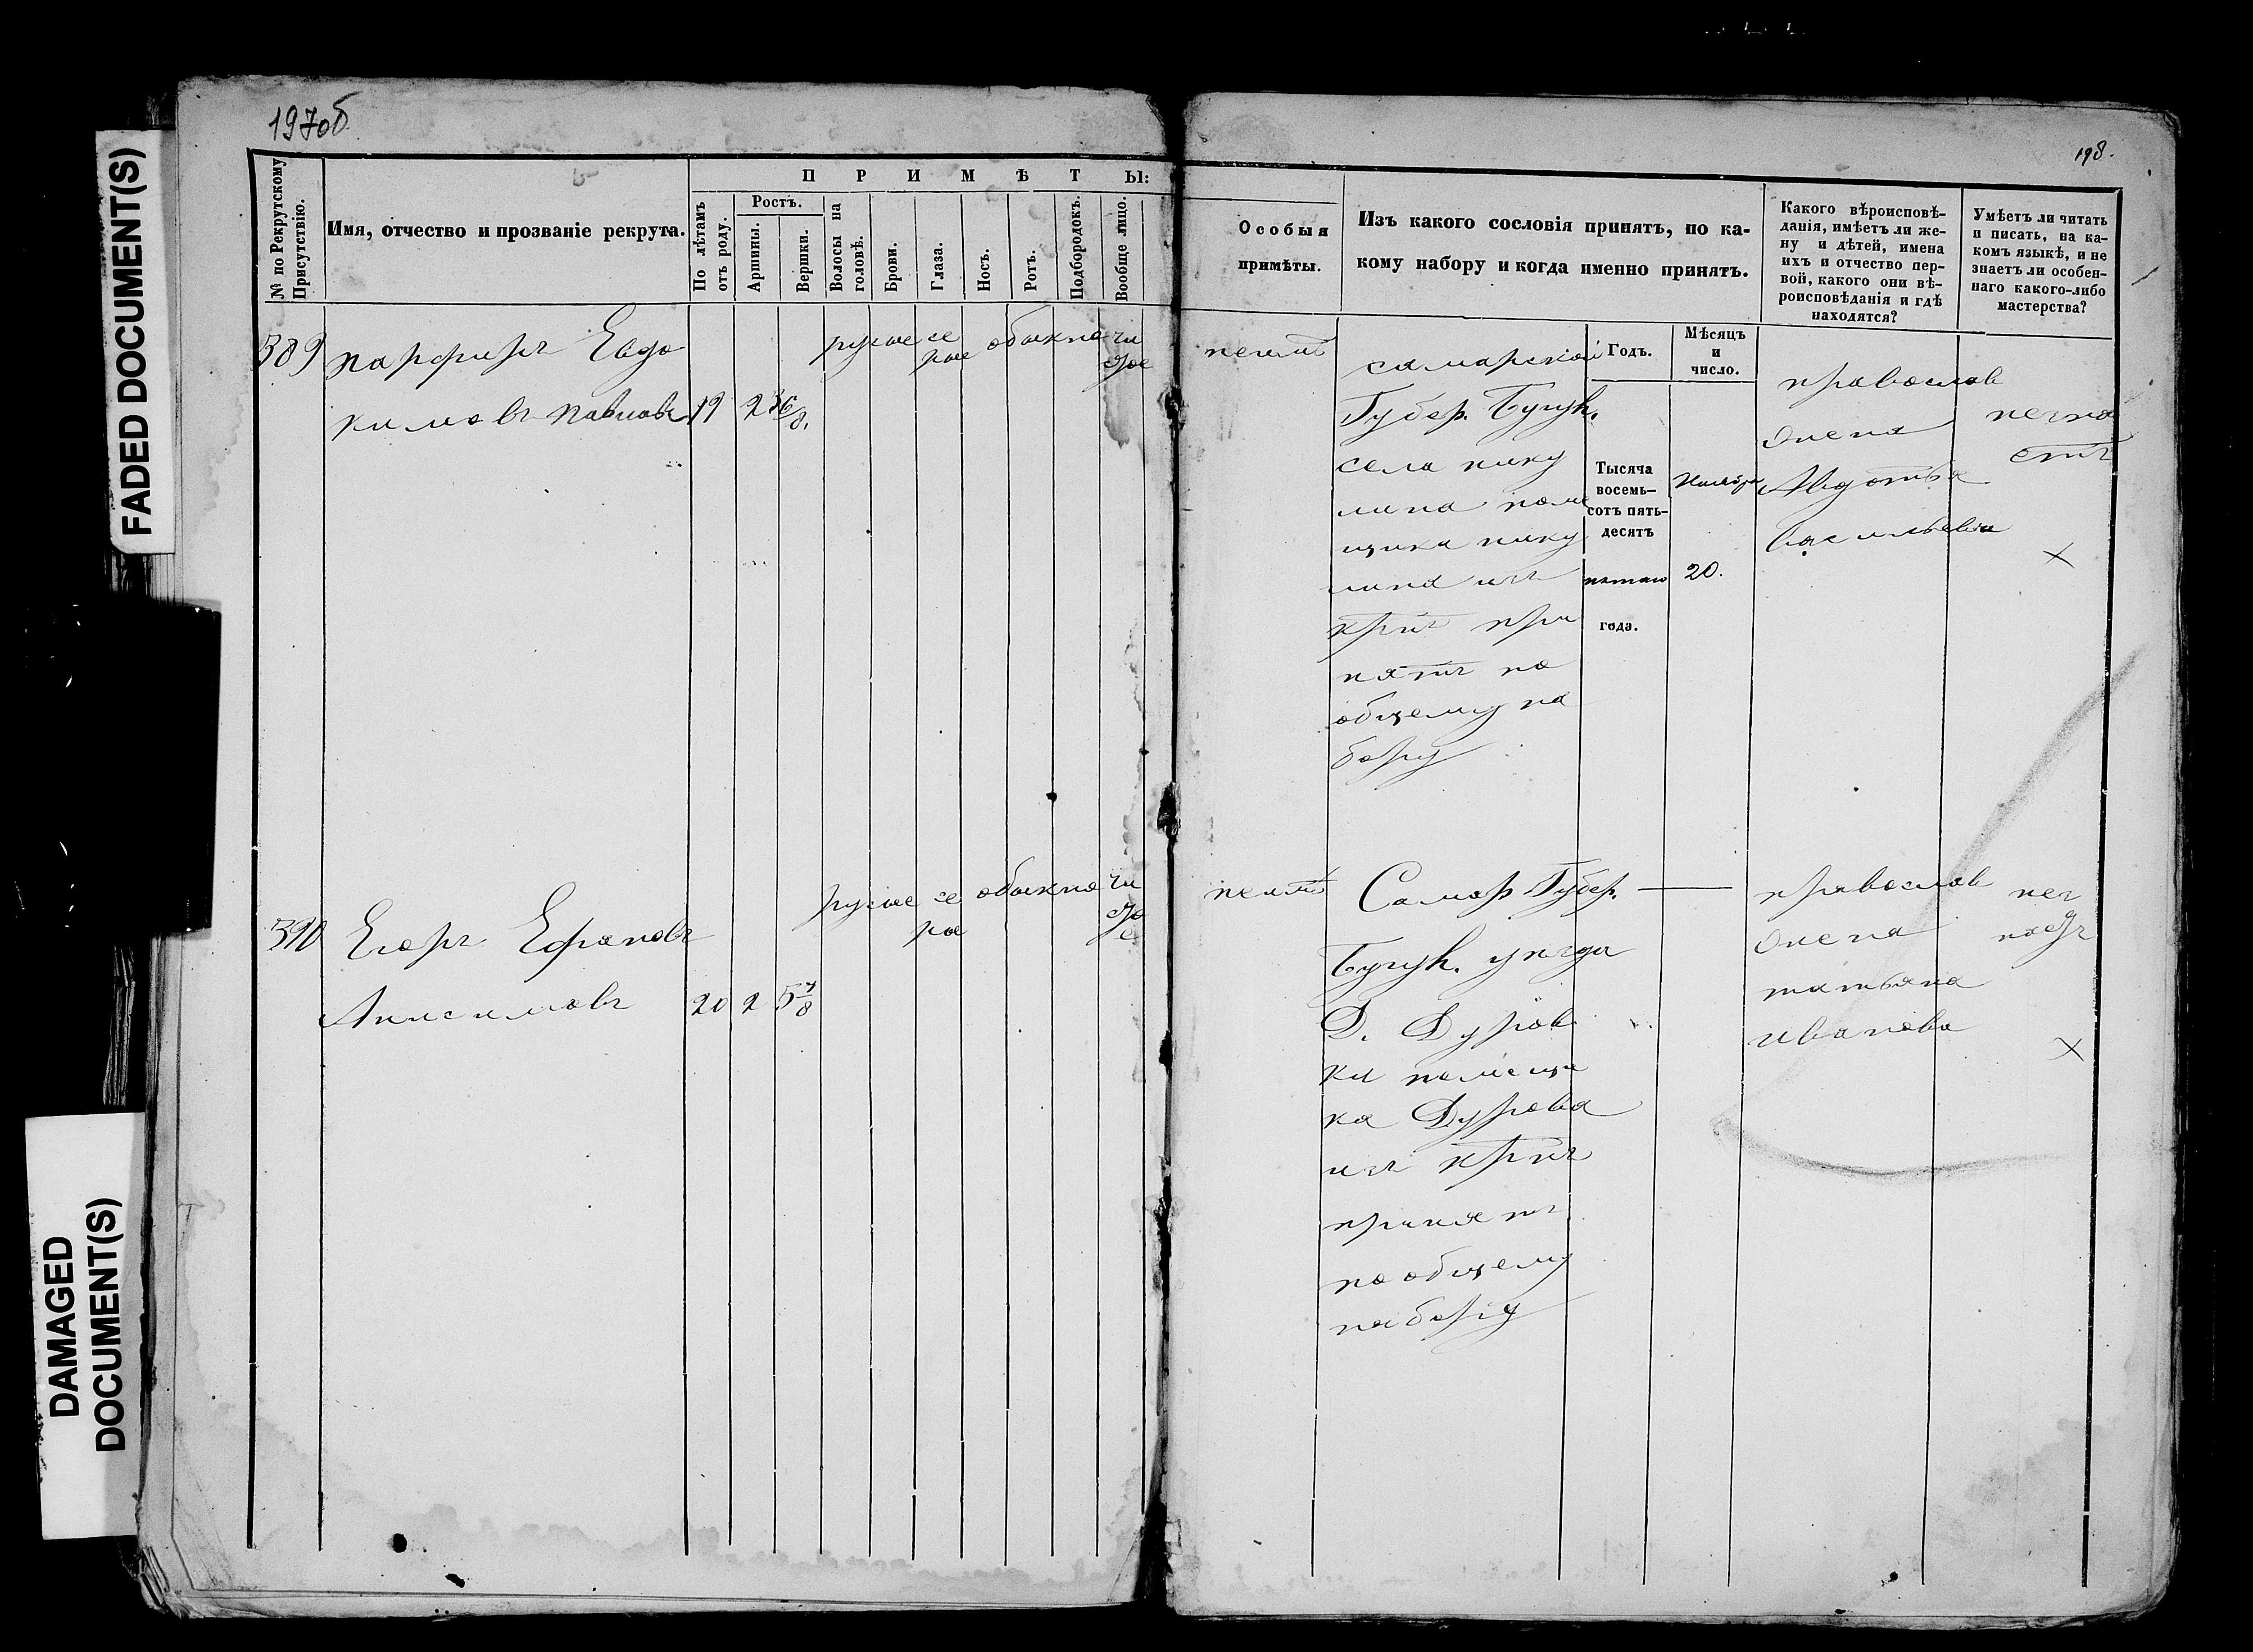 197об
198.
FADED DOCUMENT(S)
DAMAGED
DOCUMENT(S)
№ по Рекрутскому
Присутствію.
Имя, отчество и прозваніе рекрута.
ПРИМѢТЫ:
По лѣтамъ
отъ роду.
Ростъ.
Аршины.
Вершки.
Волосы на
головѣ.
Брови.
Глаза.
Носъ.
Ротъ.
Подбородокъ.
Вообще лицо.
Особыя
примѣты.
Изъ какого сословія принятъ, по ка-
кому набору и когда именно принятъ.
Какого вѣроисповѣ-
данія, имѣетъ ли же-
ну и дѣтей, имена
ихъ и отчество пер-
вой, какого они вѣ-
роисповѣданія и гдѣ
находятся?
Умѣетъ ли читать
и писать, на ка-
комъ языкѣ, и не
знаетъ ли особен-
наго какого-либо
мастерства?
Годъ.
Мѣсяцъ
и
число.
389 Парфиръ Евдо
кимовъ Павловъ 19 2
русые се
рые
обыкно
чи
стое
самарской
Губер. Бугур.
села нику
лина поме
щика нику
лина изъ
крит при
нятъ по
общему на
бору
Тысяча
восемь-
сотъ пять-
десятъ
пятаго
года.
Ноября
20.
православ
жена
Авдотья
васильева
390 Егоръ Ефановъ
Анисимовъ 20 2 5
русые се
рые
обыкно
чи
сто
е
Самар Губер.
Бугур. уѣзда
Д. Дуров
ки помещи
ка Дурова
изъ
принятъ
по общему
набору
православ
жена
татьяна
иванова